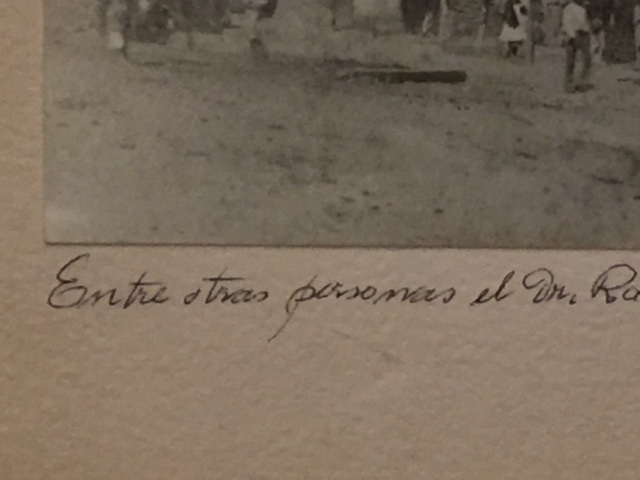 Entre otras personas el Dr. Ra